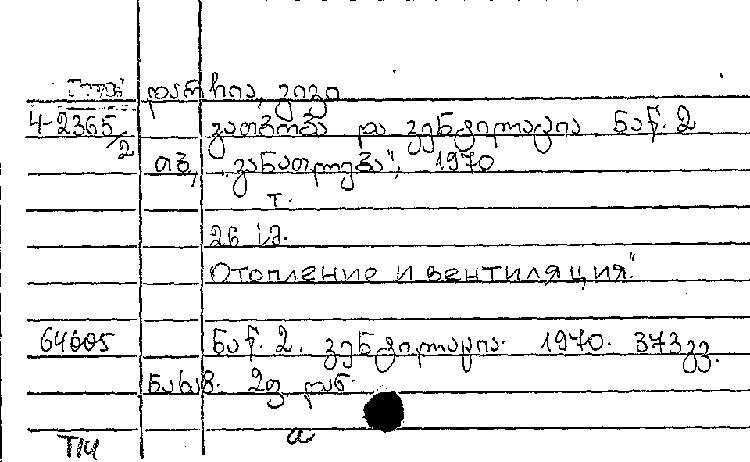 დარჩია, გივი
4-2365/2 გათბობა და ვენტილაცია ნაწ. 2
თბ, „განათლება", 1970
т.
26 სმ.
Отопление и вентиляция"
64605 ნაწ. 2. ვენტილაცია. 1970. 373გვ.
ნახაზ. 2ფ. დან.
ТПЧ